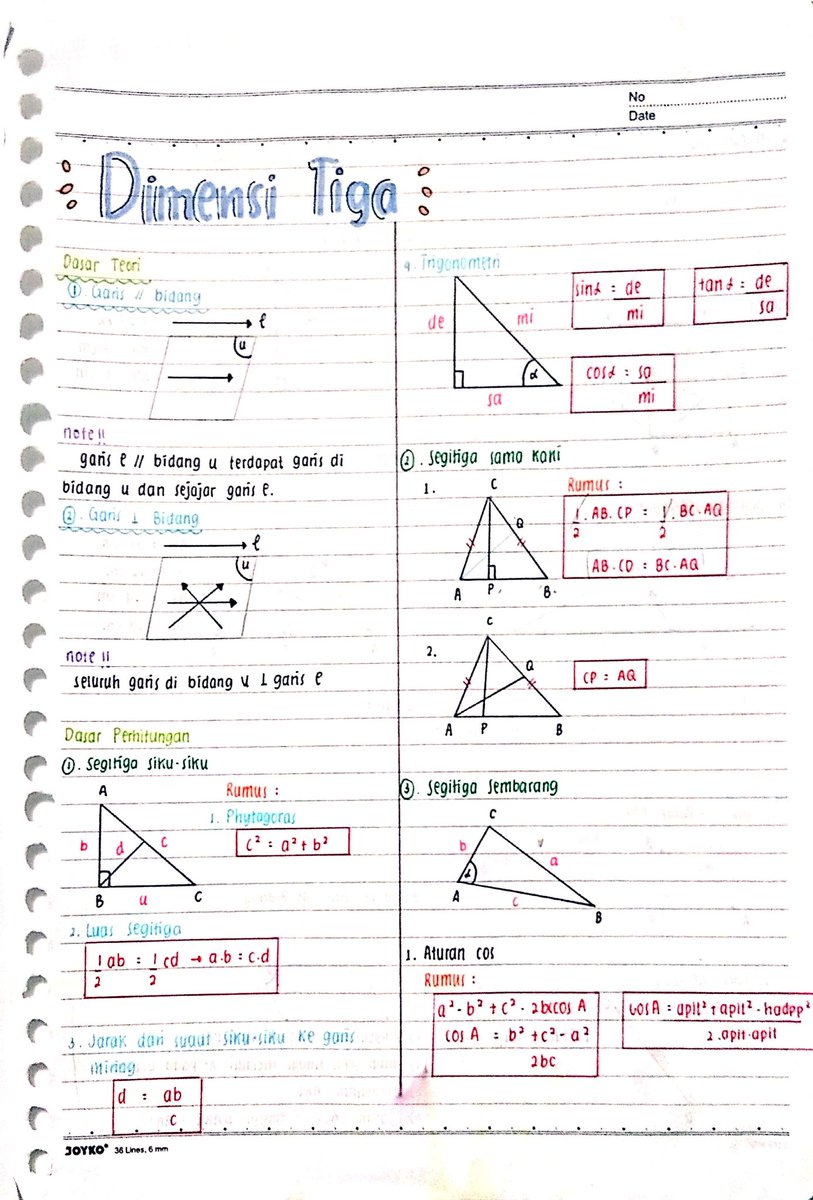 No
Date
Dimensi Tiga
Dasar Teori
① Garis // bidang
ℓ
u
note !!
garis ℓ // bidang u terdapat garis di
bidang u dan sejajar garis ℓ.
②. Garis ⊥ Bidang
ℓ
u
note !!
seluruh garis di bidang u ⊥ garis ℓ
Dasar Perhitungan
①. Segitiga siku-siku
A
b
d
c
B
u
C
Rumus :
1. Phytagoras
c² = a² + b²
2. Luas segitiga
1/2 ab = 1/2 cd → a.b = c.d
3. Jarak dari sudut siku-siku ke garis
miring
d = ab/c
4. Trigonometri
de
mi
sa
α
sin α = de/mi
tan α = de/sa
cos α = sa/mi
②. Segitiga sama kaki
1.
C
Q
A
P
B
Rumus :
1/2 . AB. CP = 1/2 . BC. AQ
AB. CD = BC. AQ
2.
C
Q
A
P
B
CP = AQ
③. Segitiga Sembarang
C
b
a
α
A
c
B
1. Aturan cos
Rumus :
a² - b² + c² - 2bccos A
cos A = b² + c² - a²/2bc
cos A = apit² + apit² - hadap²/2.apit.apit
JOYKO® 36 Lines, 6 mm